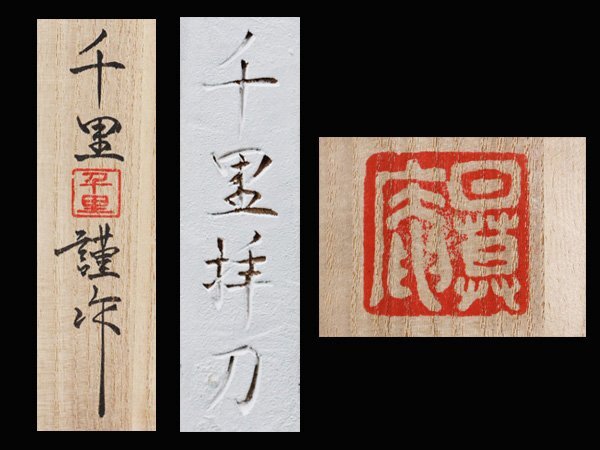 千里
千里
謹作
千里拝刀